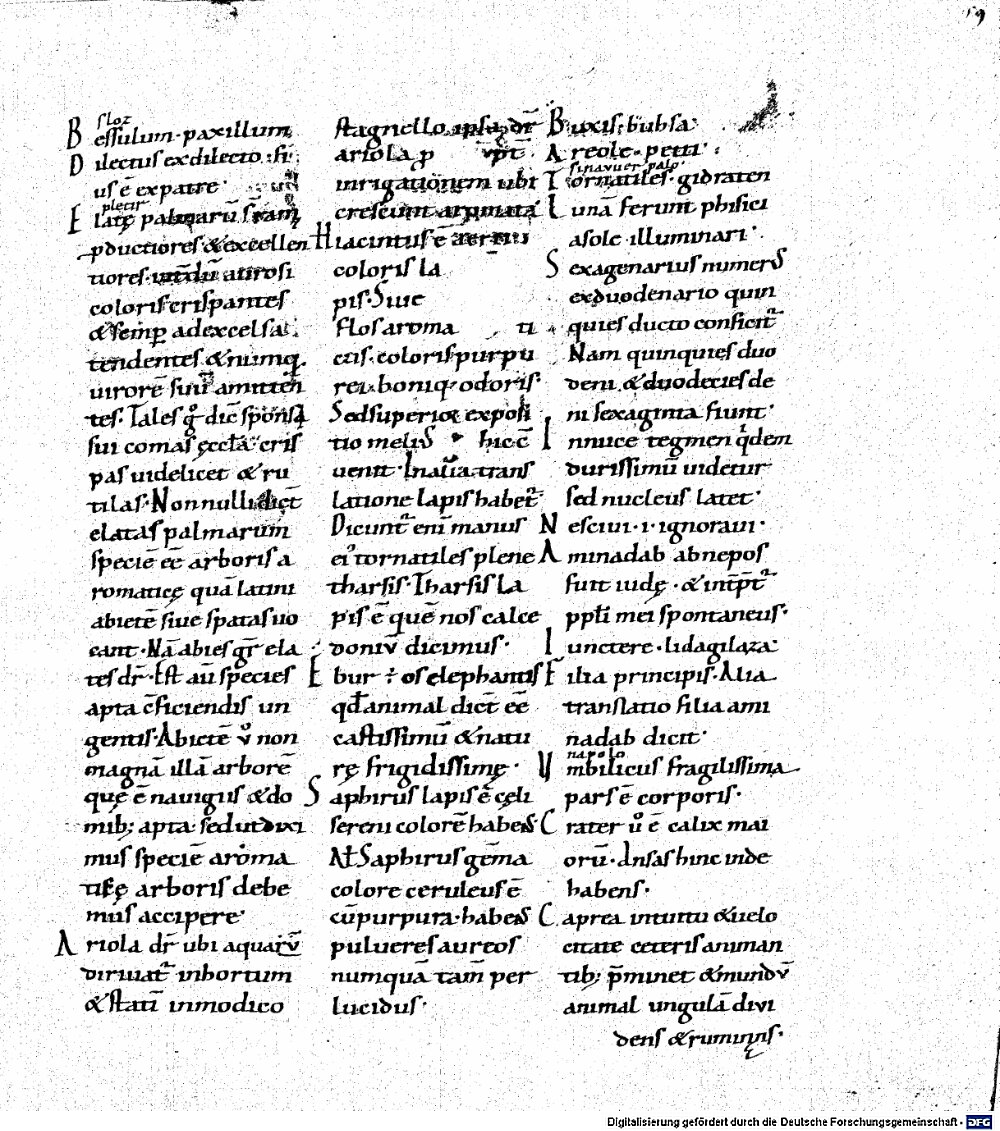 19
sloz
B essulum·paxillum
D ilectus ex dilecto·fi
us ē ex patre·
plecir
E latę palmarū
ꝓductiores & excellen
tiores atirosi
coloris crispantes
& semꝑ ad excelsa
tendentes & numq̄
uirorē suū amitten
tes·Tales gͦ dic̄ sponsa
sui comas ęccłā cris
pas uidelicet & ru
tilas·Nonnulli dic̄t
elatas palmarum
speciē eē arboris a
romaticę quā latini
abietē siue spatas uo
cant·Nā abies gr̄ ela
tes dr̄·Est aū species
apta c̄ficiendis un
gentis·Abietē v̊ non
magnā illā arborē
que ē nauigiis & do
mib; apta·sed ut dixi
mus speciē aroma
ticę arboris debe
mus accipere·
A riola dr̄ ubi aquarū
diriuat᷑ in hortum
& statī in modico
stagnello ipsa dr̄
ariola ꝓpt̄
inrigationem ubi
crescunt aromata
H iacintus ē aerii
coloris la
pis·Siue
flos aroma ti
cus·coloris purpu
rei boniq; odoris·
Sed superior exposi
tio meliꝰ hic c̄
uenit·In alia trans
latione lapis habet᷑
Dicunt᷑ enī manus
eiꝰ tornatiles plene
tharsis·Tharsis la
pis ē quē nos calce
doniū dicimus·
E bur ÷ os elephantis
qđ animal dic̄t eē
castissimū & natu
rę frigidissimę·
S aphirus lapis ē cęli
sereni colorē habens
Ał Saphirus gēma
colore ceruleus ē
cū purpura·habens
pulueres aureos
numquā tam̄ per
lucidus·
B uxis·bubsa
A reole·petti·
sinauuer palo·
T ornatiles·gidraten
L unā ferunt phisici
a sole illuminari·
S exagenarius numerꝰ
ex duodenario quin
quies ducto conficit᷑
Nam quinquies duo
deni·& duodecies de
ni sexaginta fiunt·
I n nuce tegmen qͥdem
durissimū uidetur
sed nucleus latet·
N esciui·i·ignoraui·
A minadab abnepos
fuit iudę·& int̄p̄t᷑
ppłi mei spontaneus·
I unctere·lidagilaza
F ilia principis·Alia
translatio filia ami
nadab dicit·
napolo
U mbilicus fragilissima
pars ē corporis·
C rater v̊ ē calix mai
orū·Ansas hinc inde
habens·
C aprea intuitu & uelo
citate ceteris animan
tib; p̄minet & mundū
animal ungulā diui
dens & ruminans·
Digitalisierung gefördert durch die Deutsche Forschungsgemeinschaft - DFG